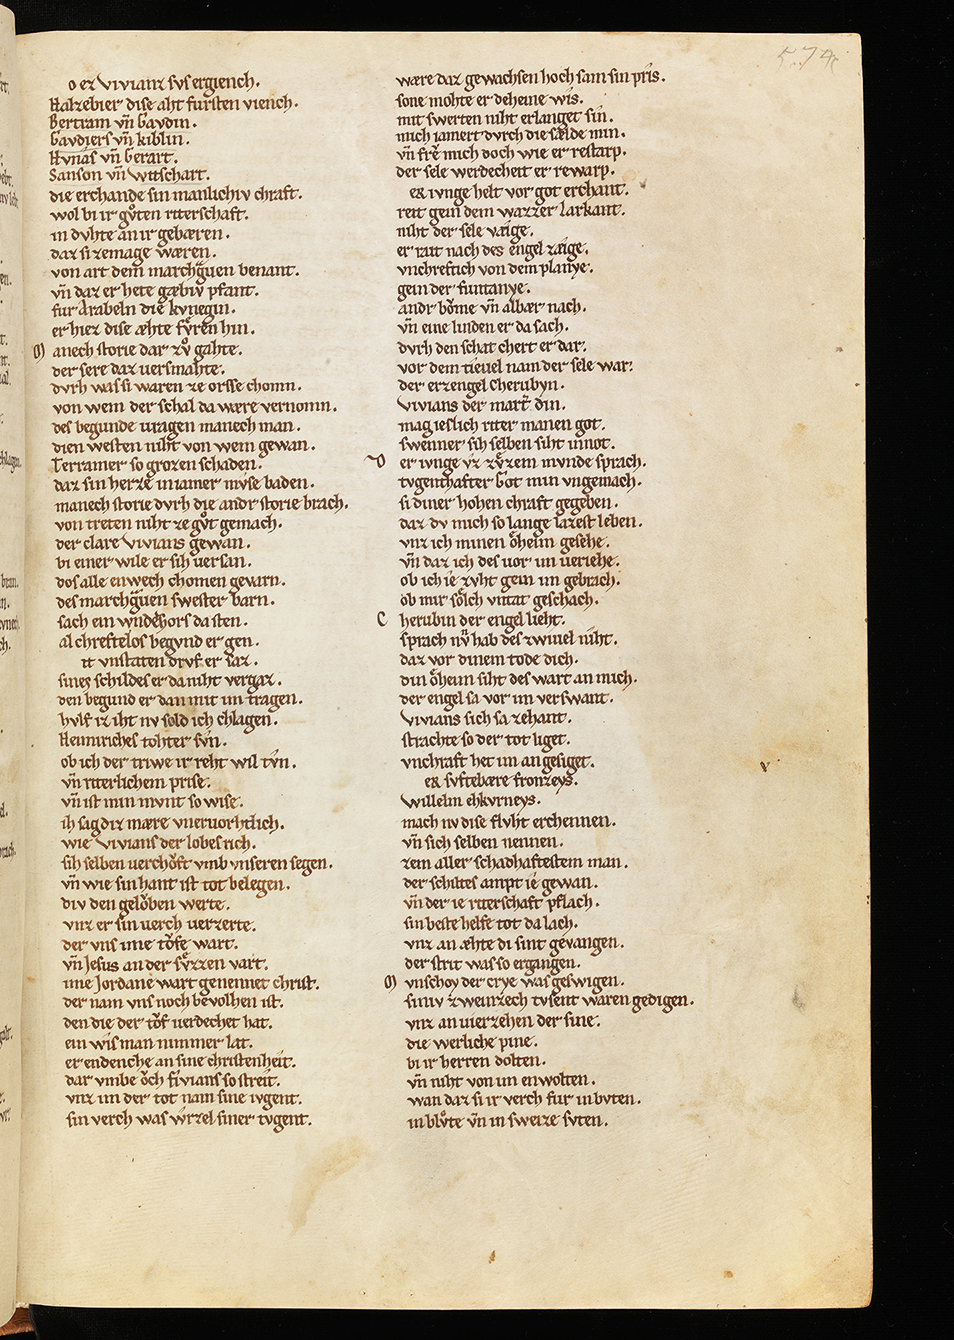 574
o ez vivianz svs ergiench.
Halzebier dise aht fursten viench.
Bertram vn̄ Gavdin.
Gavdiers vn̄ kiblin.
Hvnas vn̄ Gerart.
Sanson vn̄ Witschart.
die erchande sin manlichiv chraft.
wol bi ir gůten ritterschaft.
in dvhte an ir gebæren.
daz si zemage wæren.
von art dem marchg̃uen benant.
vn̄ daz er hete gæbiv pfant.
fur Arabeln die kvnegin.
er hiez dise æhte fv̊ren hin.
M anech storie dar zv̊ gahte.
der sere daz versmahte.
dvrh was si waren ze orsse chomn.
von wem der schal da wære vernomn.
des begunde vragen manech man.
dien westen niht von wem gewan.
Terramer so grozen schaden.
daz sin herze in iamer mvse baden.
manech storie dvrh die andr storie brach.
von treten niht ze gůt gemach.
der clare Vivians gewan.
bi einer wile er sih versan.
dos alle enwech chomen gevarn.
des marchg̃uen swester barn.
sach ein wndes hors da sten.
al chreftelos begvnd er gen.
it vnstaten drvf er saz.
sines schildes er da niht vergaz.
den begund er dan mit im tragen.
hvlf iz iht nv sold ich chlagen.
Heimriches tohter svn.
ob ich der triwe ir reht wil tv̊n.
vn̄ ritterlichem prise.
vn̄ ist min mvnt so wise.
ih sag diz mære vnervorhtlich.
wie Vivians der lobes rich.
sih selben verchoͮft vmb vnseren segen.
vn̄ wie sin hant ist tot belegen.
div den geloͮben werte.
vnz er sin verch verzerte.
der vns ime toͮfe wart.
vn̄ Jesus an der sv̊zzen vart.
ime Jordane wart genennet christ.
der nam vns noch bevolhen ist.
den die der toͮf verdechet hat.
ein wis man nimmer lat.
er endenche an sine christenheit.
dar vmbe oͮch fivians so streit.
vnz im der tot nam sine ivgent.
sin verch was wrzel siner tvgent.
wære daz gewachsen hoch sam sin pris.
sone mohte er deheine wis.
mit swerten niht erlanget sin.
mich iamert dvrch die sælde min.
vn̄ frev̄ mich doch wie er restarp.
der sele werdecheit er rewarp.
er ivnge helt vor got erchant.
reit gein dem wazzer larkant.
niht der sele væige.
er rait nach des engel zæige.
vnchreftich von dem planye.
gein der funtanye.
andr boͮme vn̄ albær nach.
vn̄ eine linden er da sach.
dvrh den schat chert er dar.
vor dem tieuel nam der sele war.
der erzengel Cherubyn.
Vivians der martr̃ din.
mag ieslich riter manen got.
swenner sih selben siht in not.
D er ivnge vz zv̊zem mvnde sprach.
tvgenthafter Got min vngemach.
si diner hohen chraft gegeben.
daz dv mich so lange lazest leben.
vnz ich minen oͤheim gesehe.
vn̄ daz ich des vor im veriehe.
ob ich ie zvht gein im gebrach.
ob mir soͤlch vntat geschach.
C herubin der engel lieht.
sprach nv̊ hab des zwiuel niht.
daz vor dinem tode dich.
din oͤheim siht des wart an mich.
der engel sa vor im verswant.
Vivians sich sa zehant.
strachte so der tot liget.
vnchraft het im an gesiget.
er svftebære fronzeys.
Willelm ehkvrneys.
mach nv dise flvht erchennen.
vn̄ sich selben nennen.
zem aller schadhaftestem man.
der schiltes ampt ie gewan.
vn̄ der ie riterschaft pflach.
sin beste helfe tot da lach.
vnz an æhte di sint gevangen.
der strit was so ergangen.
M vnschoy der crye was geswigen.
siniv zweinzech tvsent waren gedigen.
vnz an vierzehen der sine.
die werliche pine.
bi ir herren dolten.
vn̄ niht von im enwolten.
wan daz si ir verch fur in bvten.
in blůte vn̄ in sweize svten.